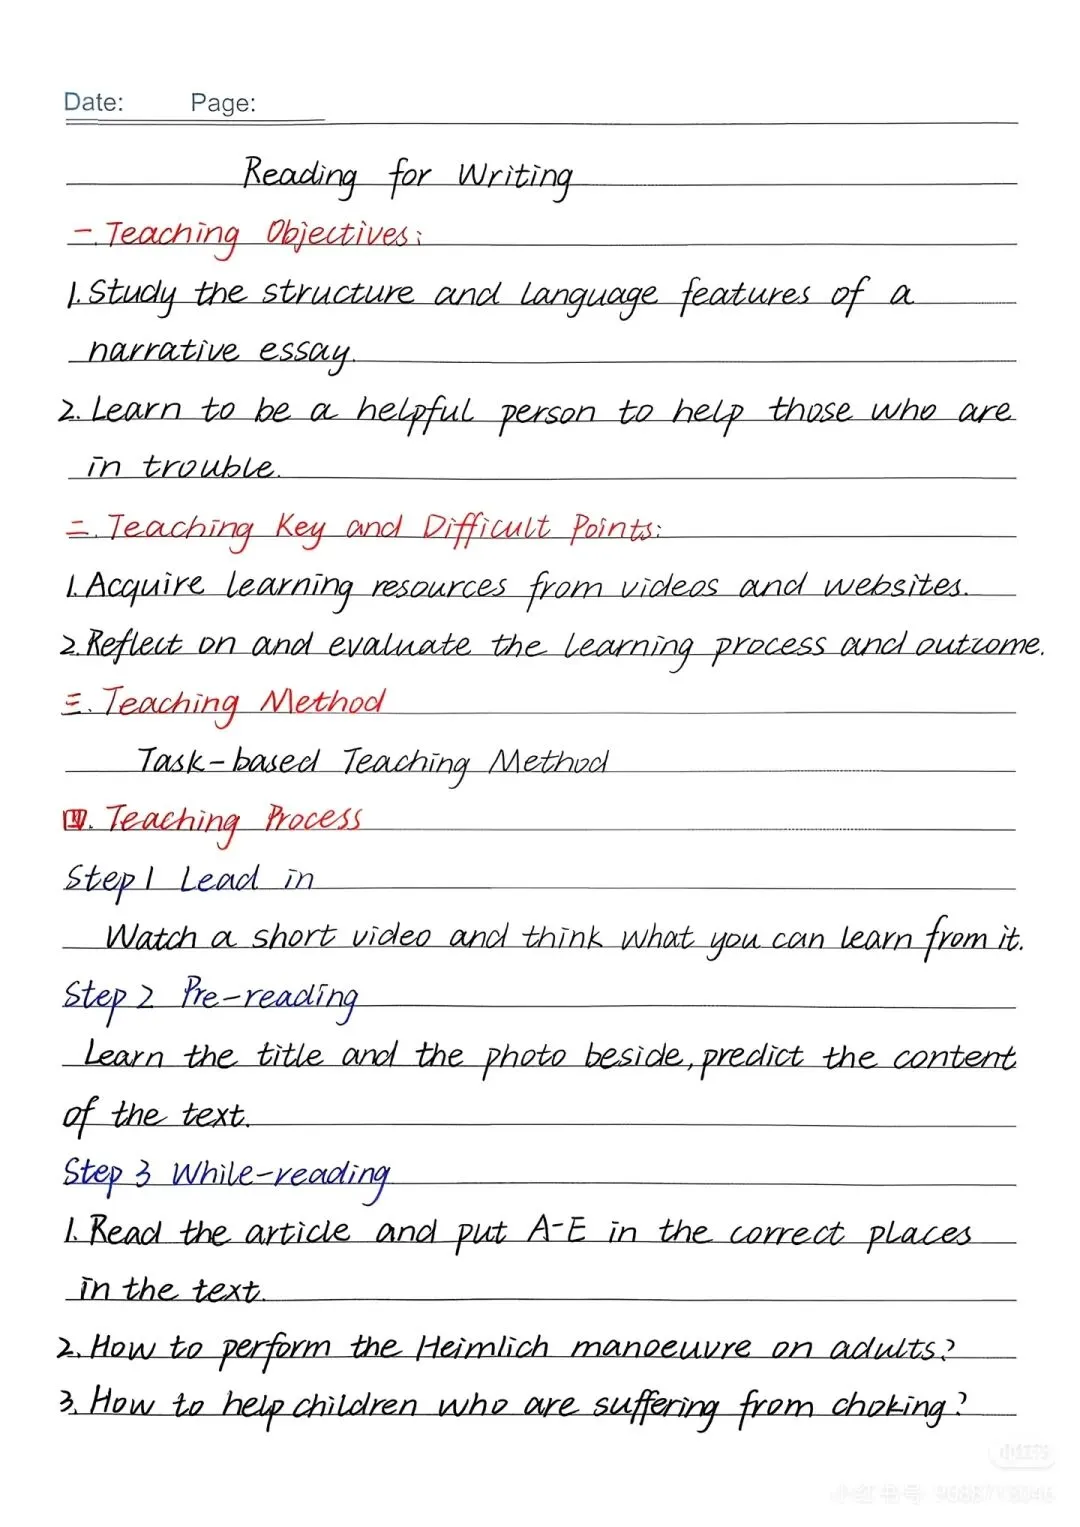 Date: Page:
Reading for Writing
一. Teaching Objectives:
1. Study the structure and language features of a
narrative essay.
2. Learn to be a helpful person to help those who are
in trouble.
二. Teaching Key and Difficult Points:
1. Acquire learning resources from videos and websites.
2. Reflect on and evaluate the learning process and outcome.
三. Teaching Method
Task-based Teaching Method
四. Teaching Process
Step 1 Lead in
Watch a short video and think what you can learn from it.
Step 2 Pre-reading
Learn the title and the photo beside, predict the content
of the text.
Step 3 While-reading
1. Read the article and put A-E in the correct places
in the text.
2. How to perform the Heimlich manoeuvre on adults?
3. How to help children who are suffering from choking?
小红书
小红书号